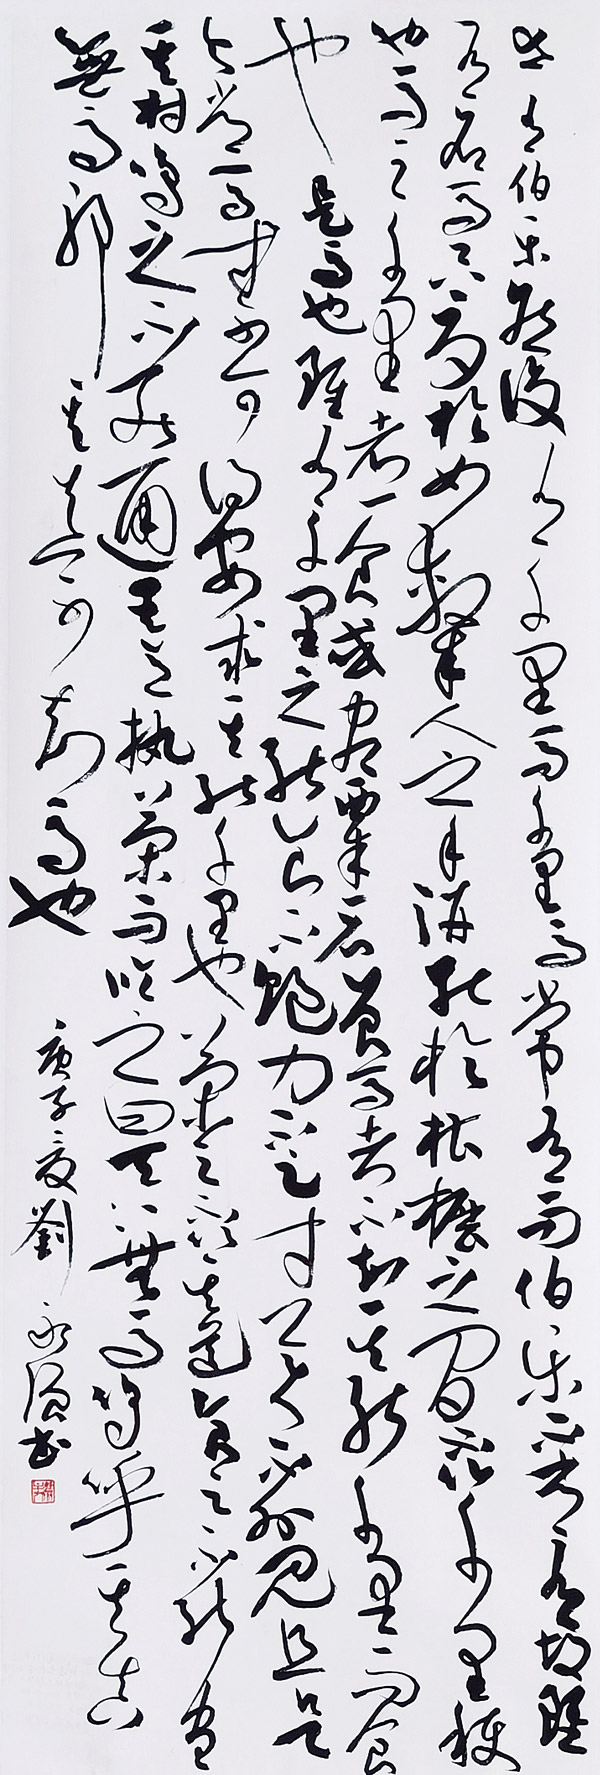 世有伯樂然後有千里馬千里馬常有而伯樂不常有故雖
有名馬只辱於奴隸人之手駢死於槽櫪之間不以千里稱
也馬之千里者一食或盡粟一石食馬者不知其能千里而食
也是馬也雖有千里之能食不飽力不足才美不外見且
與常馬等不可得安求其能千里也策之不以其道食之不能盡
其材鳴之不能通其意執策而臨之曰天下無馬嗚呼其真
無馬邪其真不知馬也
庚子夏劉永書